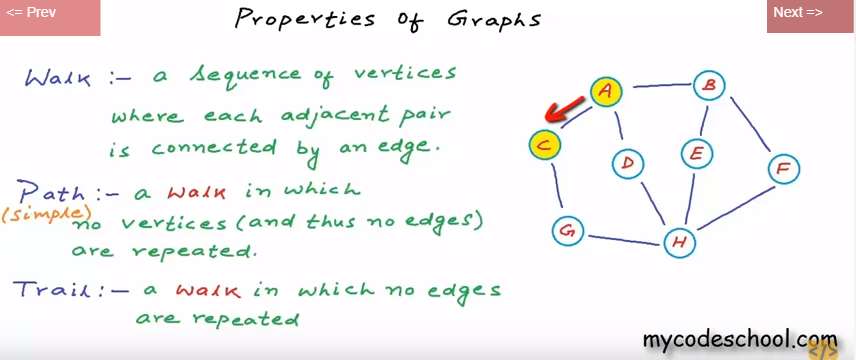 <= Prev
Properties of Graphs
Next =>
Walk :- a sequence of vertices
where each adjacent pair
is connected by an edge.
Path :- a walk in which
(simple) no vertices (and thus no edges)
are repeated.
Trail :- a walk in which no edges
are repeated
A
B
C
D
E
F
G
H
mycodeschool.com
</>